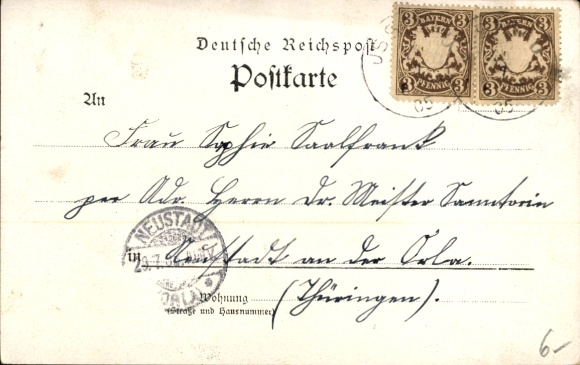 Deutsche Reichspost
Postkarte
BAYERN
3 3
PFENNIG
BAYERN
3 3
PFENNIG
05
05
An
Frau Sophie Saalfrank
per Adr. Herrn Dr. Meister Sanatorin
NEUSTADT
in Neustadt an der Orla.
29.7.
(ORLA)
Wohnung
(Straße und Hausnummer)
(Thüringen).
6-